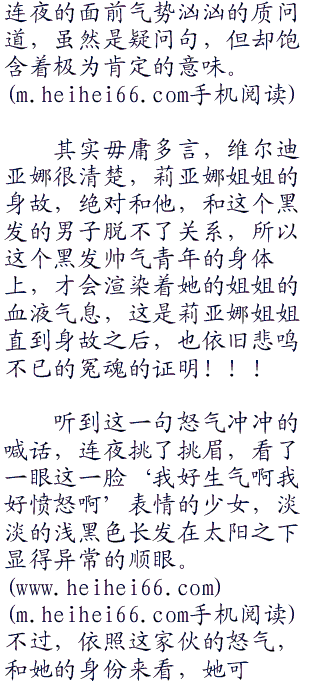 连夜的面前气势汹汹的质问
道，虽然是疑问句，但却饱
含着极为肯定的意味。
(m.heihei66.com手机阅读)
其实毋庸多言，维尔迪
亚娜很清楚，莉亚娜姐姐的
身故，绝对和他，和这个黑
发的男子脱不了关系，所以
这个黑发帅气青年的身体
上，才会渲染着她的姐姐的
血液气息，这是莉亚娜姐姐
直到身故之后，也依旧悲鸣
不已的冤魂的证明！！！
听到这一句怒气冲冲的
喊话，连夜挑了挑眉，看了
一眼这一脸‘我好生气啊我
好愤怒啊’表情的少女，淡
淡的浅黑色长发在太阳之下
显得异常的顺眼。
(www.heihei66.com)
(m.heihei66.com手机阅读)
不过，依照这家伙的怒气，
和她的身份来看，她可